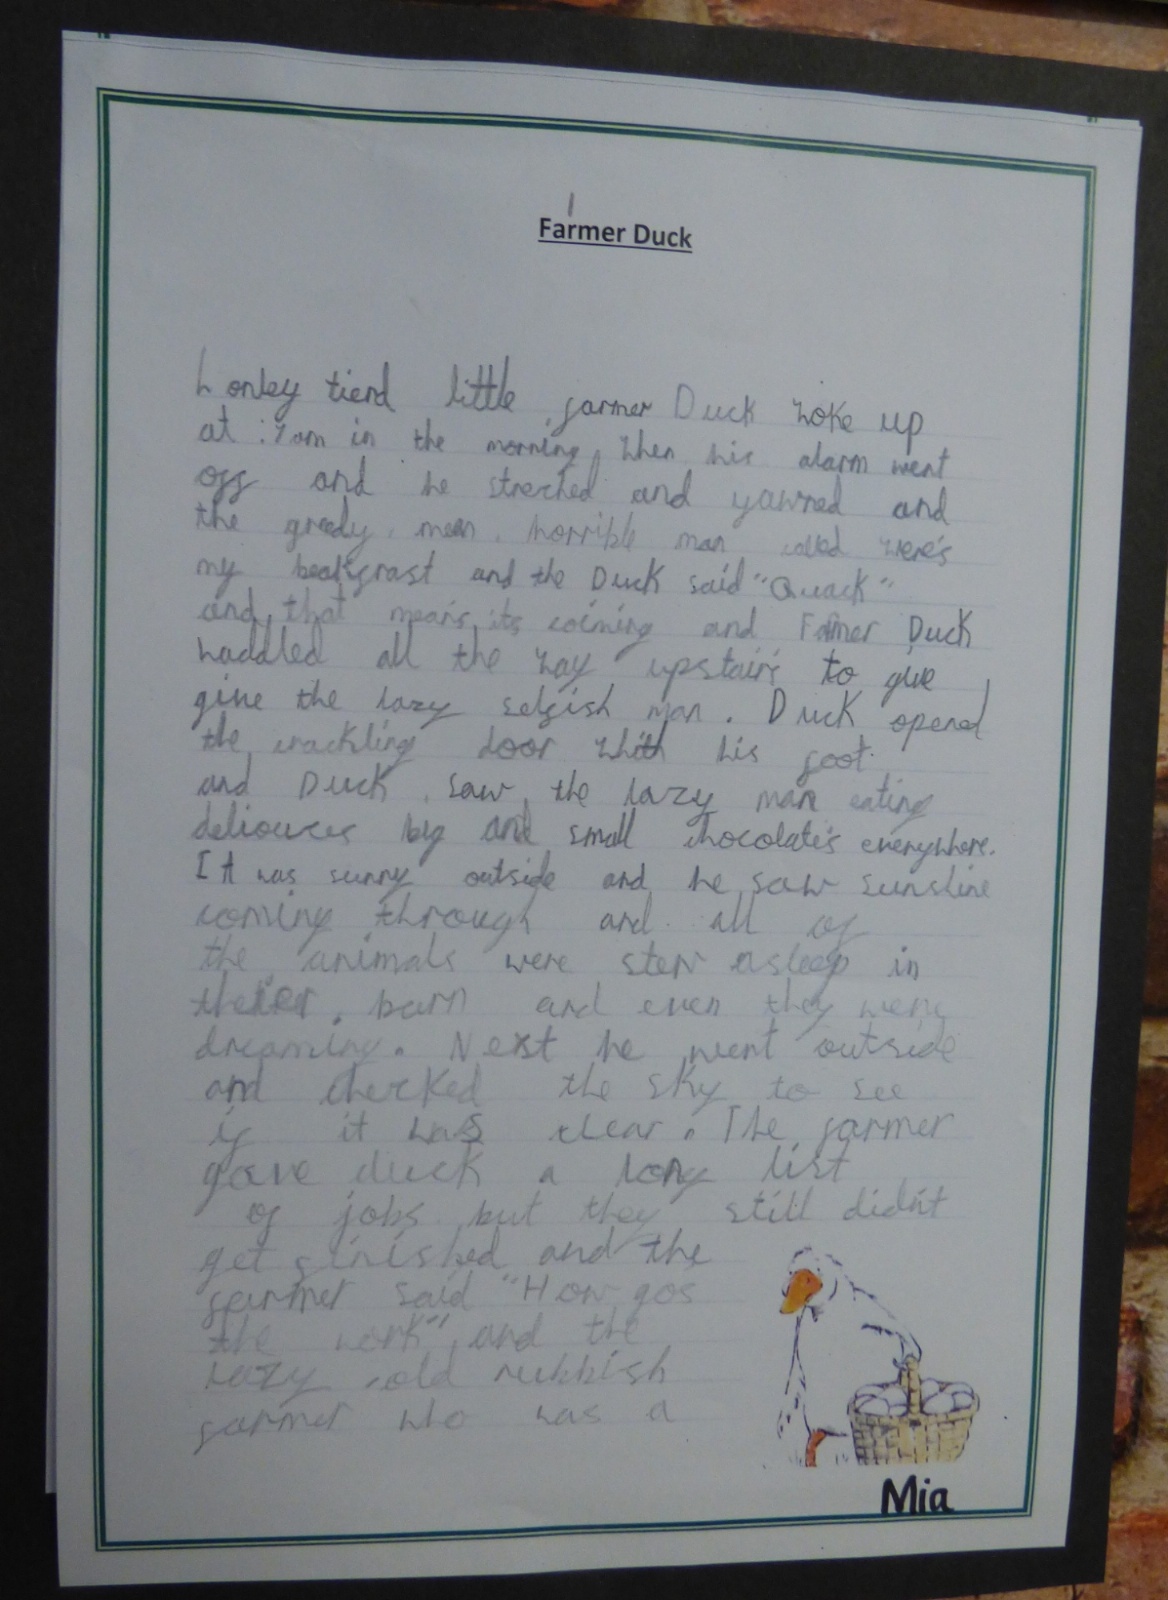 Farmer Duck
Lonley tierd little farmer Duck woke up
at :7am in the morning, when his alarm went
off and he streched and yawned and
the gredy, mean, horrible man called were's
my beakfrast and the Duck said "Quack"
and that mean's its coming and Farmer Duck
waddled all the way upstairs to give
give the lazy selfish man. Duck opened
the crackling door whith his foot.
and Duck saw the lazy man eating
delicuces big and small chocolate's everywhere.
It was sunny outside and he saw sunshine
coming through and all of
the animals were sten asleep in
barn and even they were
dreaming. Next he went outside
and checked the sky to see
if it was clear. The farmer
gave duck a long list
of jobs but they still didn't
get finished and the
farmer said "How gos
the work" and the
lazy old rubbish
farmer who was a
Mia